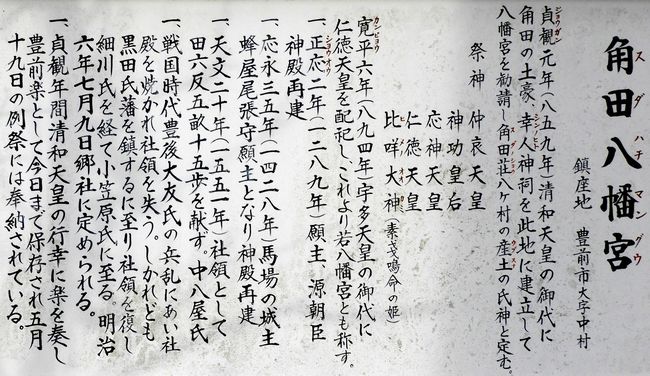 角田八幡宮
スダハチマングウ
鎮座地 豊前市大字中村
貞観元年(八五九年)清和天皇の御代に
角田の土豪、幸人神祠を此地に建立して
八幡宮を勧請し角田荘八ヶ村の産土の氏神と定む。
祭神 仲哀天皇
神功皇后
応神天皇
仁徳天皇
比咩大神(素戔嗚命の姫)
寛平六年(八九四年)宇多天皇の御代に
仁徳天皇を配記し、これより若八幡宮とも称す。
一、正応二年(一二八九年)願主、源朝臣
神殿再建
一、応永三五年(一四二八年)馬場の城主
蜂屋尾張守願主となり神殿再建
一、天文二十年(一五五一年)社領として
田六反五畝十五歩を献ず。中八屋氏
一、戦国時代豊後大友氏の兵乱にあい社
殿を焼かれ社領を失う。しかれども
黒田氏藩を鎮するに至り社領を復し
細川氏を経て小笠原氏に至る。明治
六年七月九日郷社に定められる。
一、貞観年間清和天皇の行幸に楽を奏し
豊前楽として今日まで保存され五月
十九日の例祭には奉納されている。